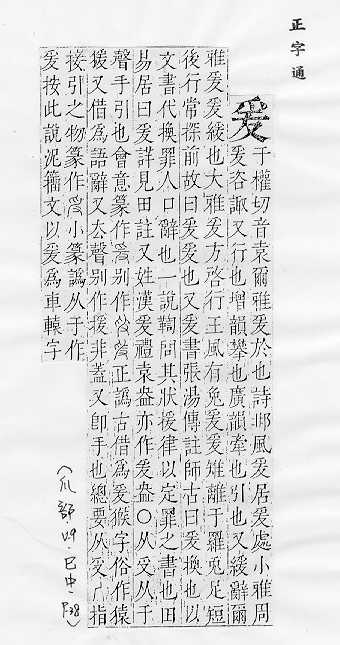 正字通
爰
于權切音袁爾雅爰於也詩邶風爰居爰處小雅周
爰咨諏又行也增韻攀也廣韻牽也引也又緩辭爾
雅爰爰緩也大雅爰方啓行王風有兔爰爰雉離于羅兎足短
後行常探前故曰爰爰也又爰書張湯傳註師古曰爰換也以
文書代換罪人口辭也一說鞫問其狀援律以定罪之書也田
易居曰爰詳見田註又姓漢爰禮袁盎亦作爰盎○从𠬪从于
聲手引也會意篆作别作正譌古借爲爰猴字俗作猿
援又借爲語辭又去聲别作援非蓋又卽手也總要从𠬪厂指
接引之物篆作小篆譌从于作
爰按此說泥籀文以爰爲車轅字
(爪部 巳中.P38)